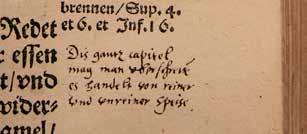 brennen/Sup. 4.
et 6. et Inf. 16.
Redet
r essen
t/vnd
wider-
amel/
Dis gantz capitel
mag man
es handelt von reiner
vnd vnreiner speise.